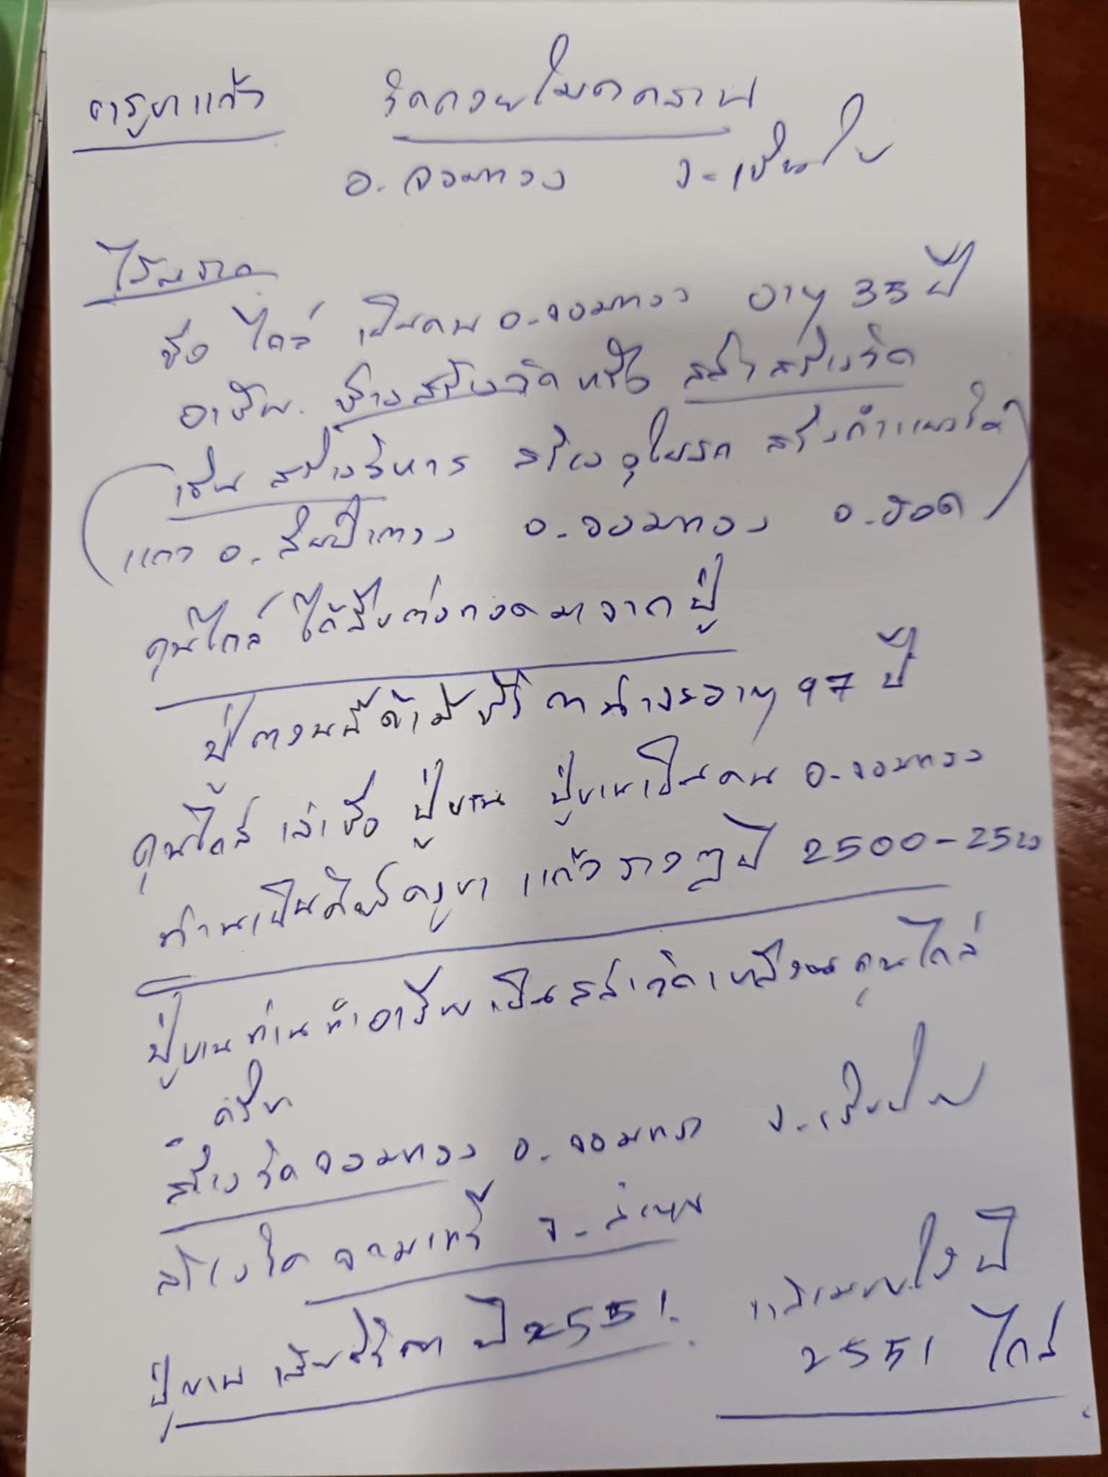 ครูบาแก้ว วัดดอยโมคคลาน
อ.จอมทอง จ.เชียงใหม่
ชื่อ ไกล่ เป็นคน อ.จอมทอง อายุ 35 ปี
อาชีพ. ช่างสร้างวัด หรือ สล่าสร้างวัด
เช่น สร้างวิหาร สร้าง อุโบสถ สร้างกำแพง
แถว อ.สันป่าตอง อ.จอมทอง อ.ฮอด
คุณไกล่ ได้สืบต่อทอดมาจากปู่
ปู่ตอนนี้ถ้ามีชีวิต น่าจะอายุ 97 ปี
คุณไกล่ เล่าชื่อ ปู่ขาน ปู่ขานเป็นคน อ.จอมทอง
ท่านเป็นศิษย์ครูบา แก้วราวๆปี 2500-25
ปู่ขานท่านทำอาชีพเป็นสล่าวัดเหมือนคุณไกล่
ครับ
สร้าง วัดจอมทอง อ.จอมทอง จ.เชียงใหม่
สร้างวัด จามเทวี จ.ลำพูน
ปู่ขาน เสียชีวิต ปี 2551. ในปี
2551 ไกล่